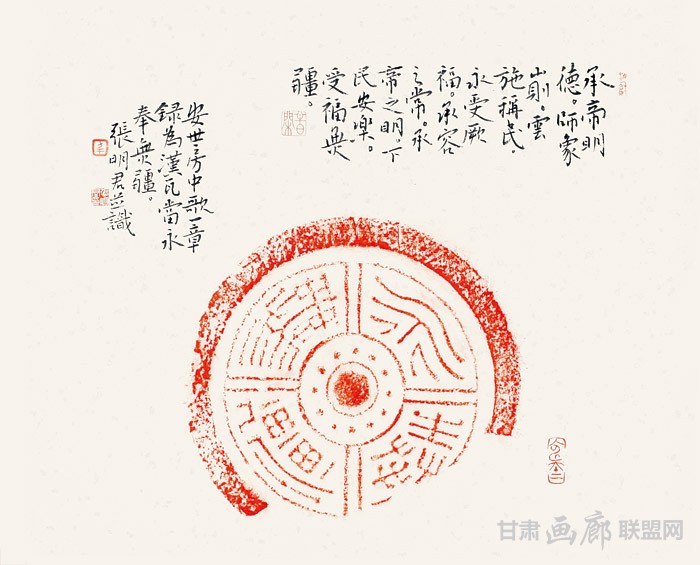 承帝明
德。師象
山則。雲
施稱民。
永受厥
福。承容
之常。承
帝之明。下
民安樂。
受福無
疆。
安世房中歌一章
録為漢瓦當永
奉無疆。
張明君並識
永奉無疆
甘肃画廊联盟网